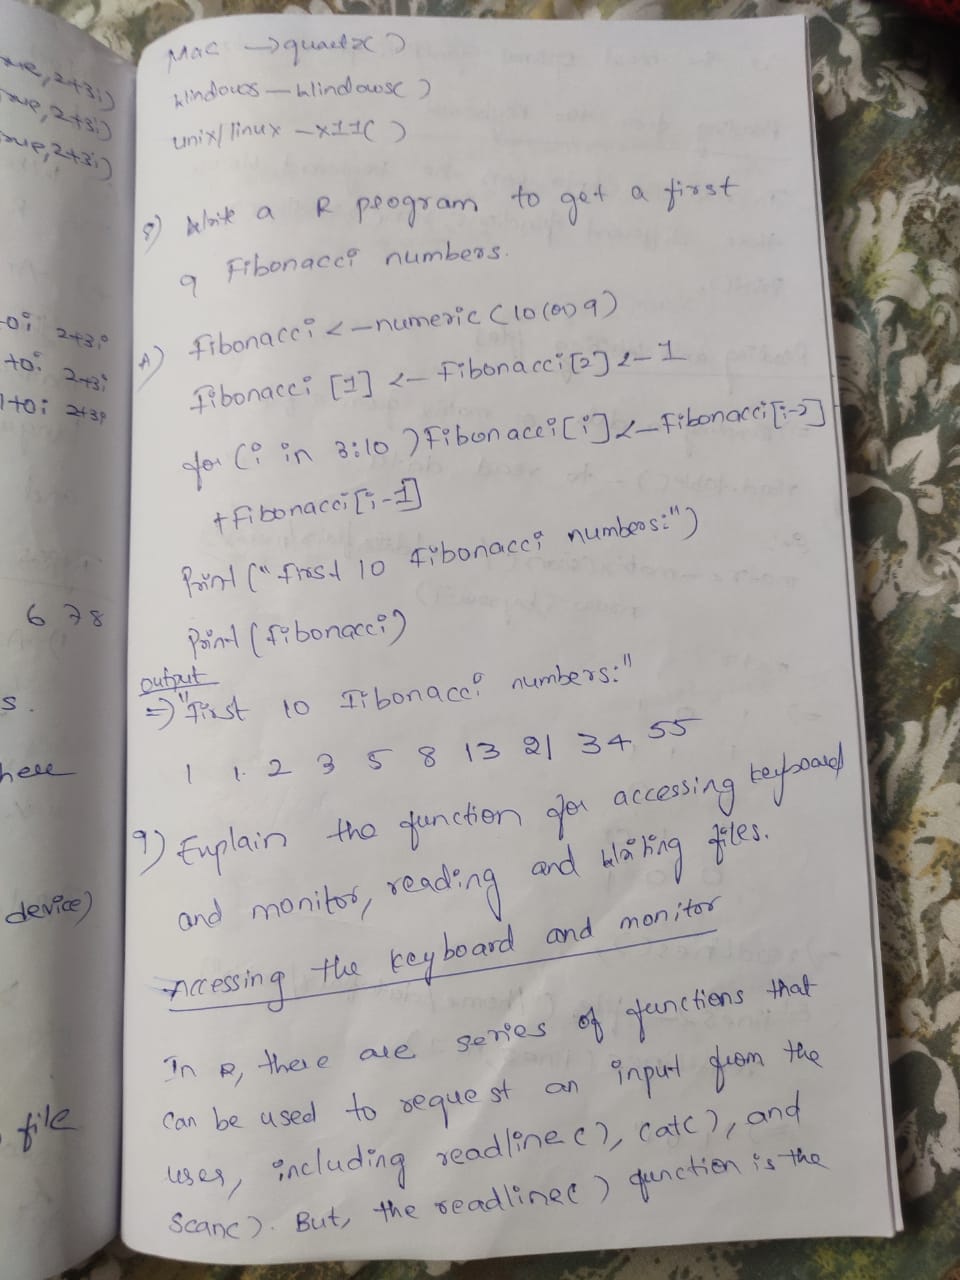 rue, 2+3i)
rue, 2+3i)
rue, 2+3i)
+0i 2+3i
+0i 2+3i
1+0i 2+3i
6 7 8
s.
here
device)
file
Mac → quartz()
Windows — Windows()
unix/linux — x11()
8) Write a R program to get a first
9 Fibonacci numbers.
A) Fibonacci <- numeric (10 (or) 9)
Fibonacci [1] <- Fibonacci [2] <- 1
for (i in 3:10) Fibonacci [i] <- Fibonacci [i-2]
+ Fibonacci [i-1]
Print (" First 10 Fibonacci numbers:")
Print (Fibonacci)
output
=> "First 10 Fibonacci numbers:"
1 1 2 3 5 8 13 21 34 55
9) Explain the function for accessing keyboard
and monitor, reading and writing files.
Accessing the keyboard and monitor
In R, there are series of functions that
can be used to request an input from the
user, including readline(), cat(), and
scan(). But, the readline() function is the